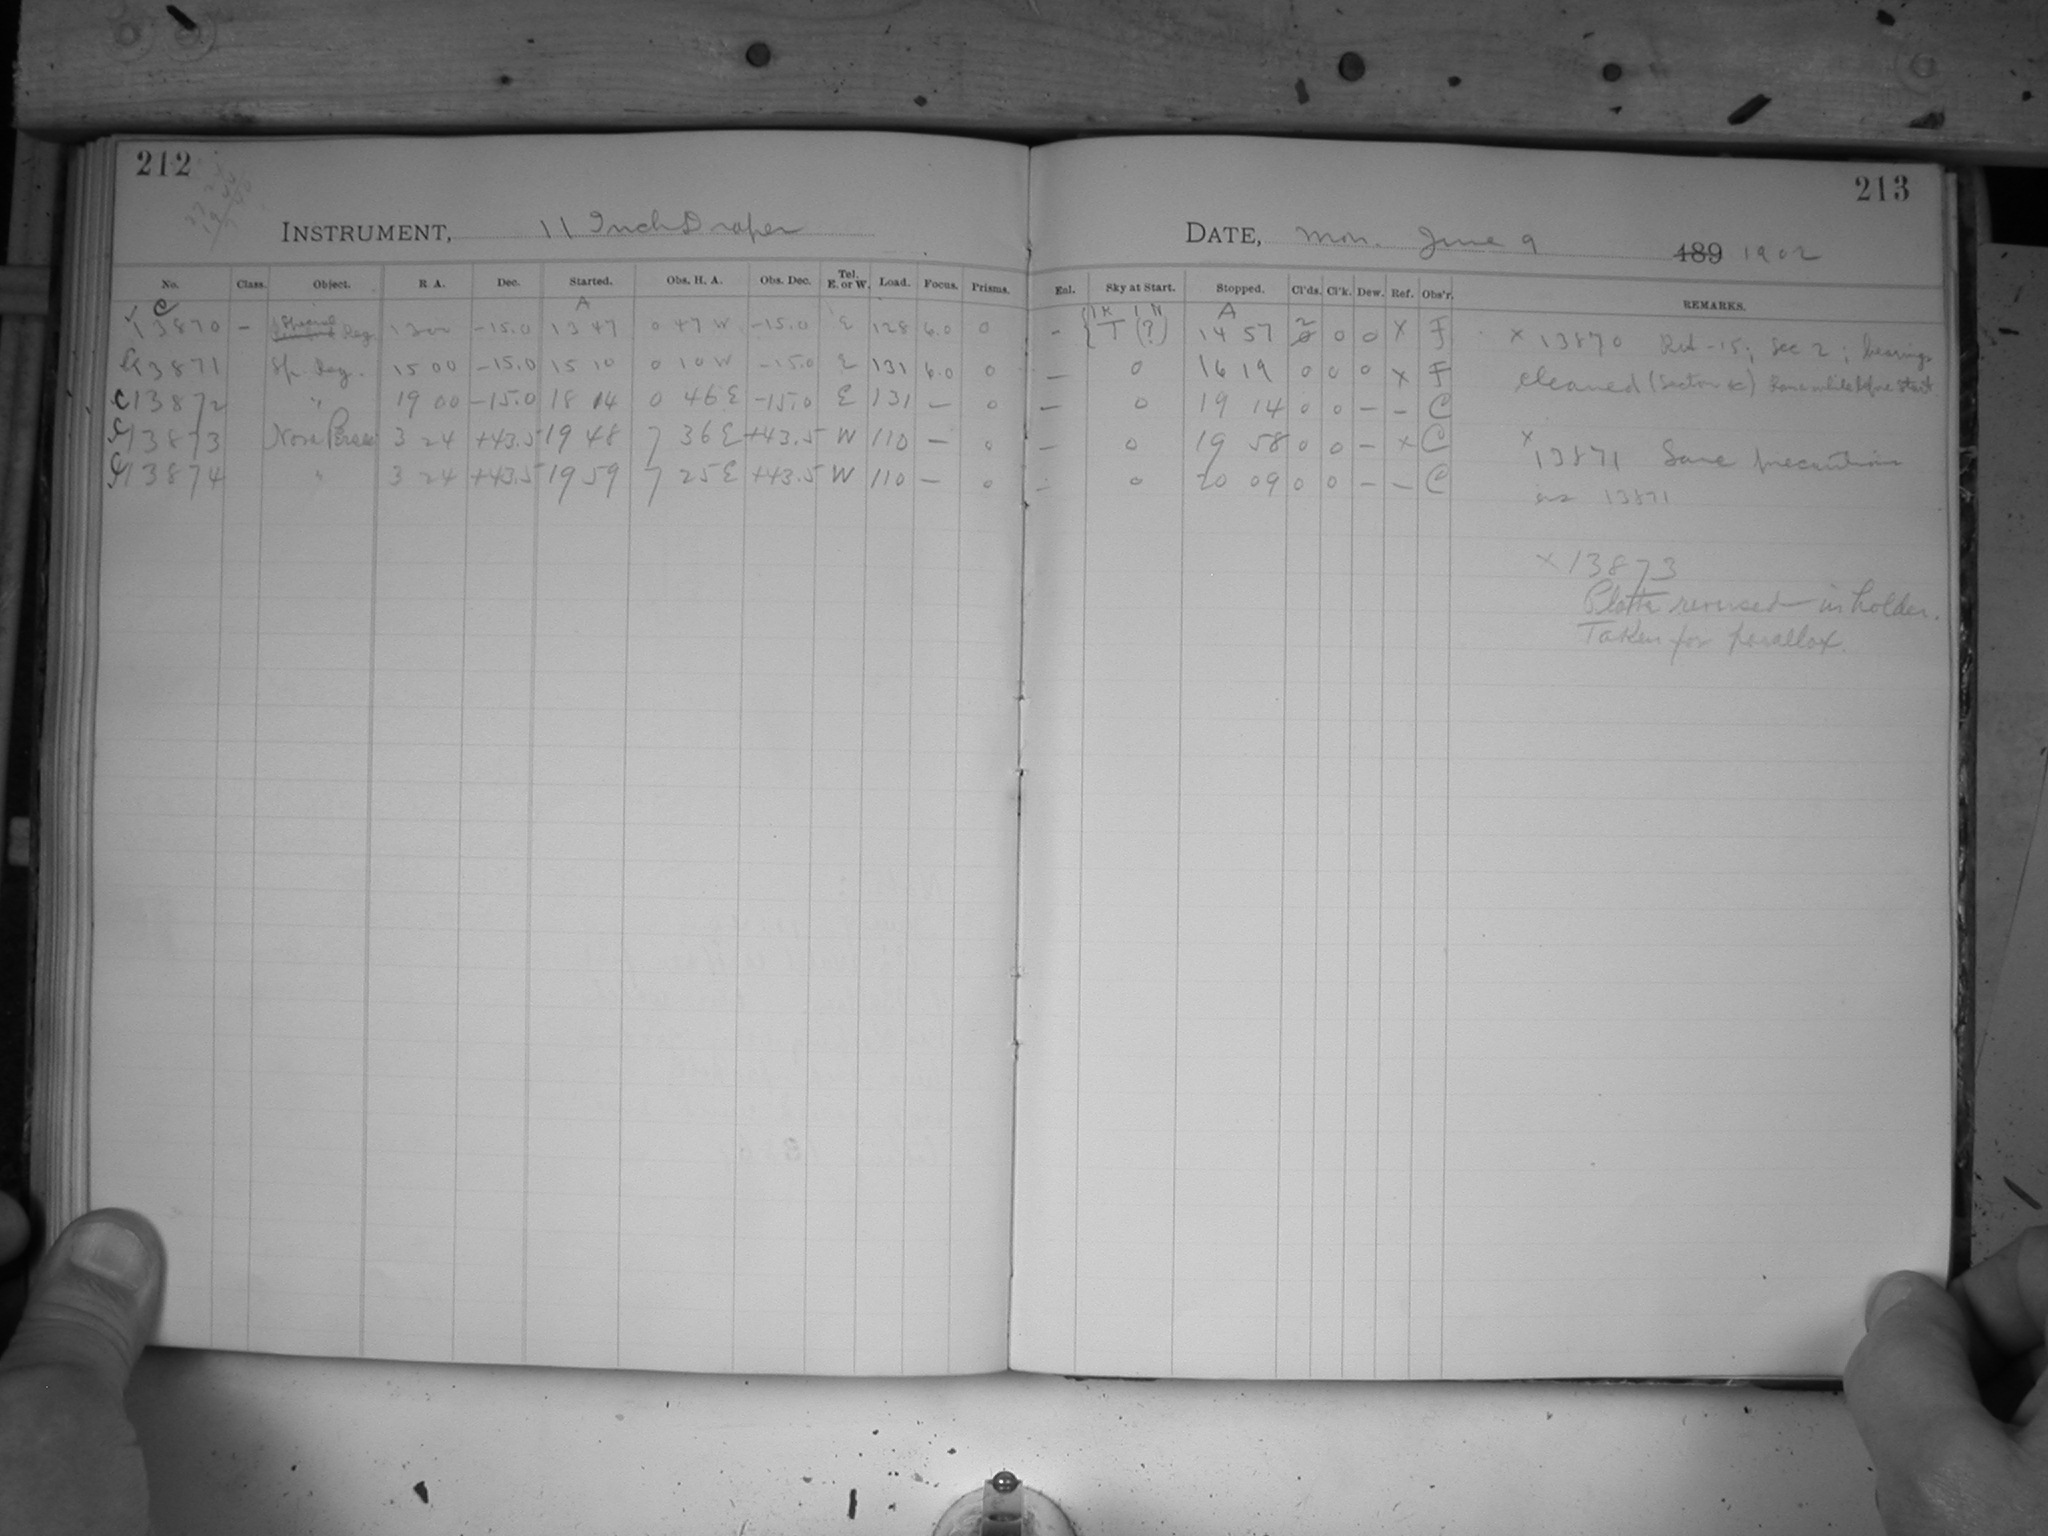 212
INSTRUMENT, 11 Inch Draper
No. Class. Object. R. A. Dec. Started. Obs. H. A. Obs. Dec. Tel. E. or W. Load. Focus. Prisms.
C A
13870 - Special Reg. 13 00 -15.0 13 47 0 47 W -15.0 E 128 6.0 0
13871 Sp. Reg. 15 00 -15.0 15 10 0 10 W -15.0 E 131 6.0 0
C13872 " 19 00 -15.0 18 14 0 46 E -15.0 E 131 — 0
C13873 Nova Persei 3 24 +43.5 19 48 7 36 E +43.5 W 110 — 0
C13874 " 3 24 +43.5 19 59 7 25 E +43.5 W 110 — 0
213
DATE, Mon. June 9 189 1902
Enl. Sky at Start. Stopped. Cl'ds. Cl'k. Dew. Ref. Obs'r. REMARKS.
A
- T (?) 14 57 2 0 0 0 x F
— 0 16 19 0 0 0 x F
— 0 19 14 0 0 — — C
— 0 19 58 0 0 — x C
— 0 20 09 0 0 — — C
x 13870 -15; Sec 2; bearings
cleaned (Section &c) start
x 13871 Same precautions
as 13871
x 13873
Plate reversed in holder.
Taken for parallax.